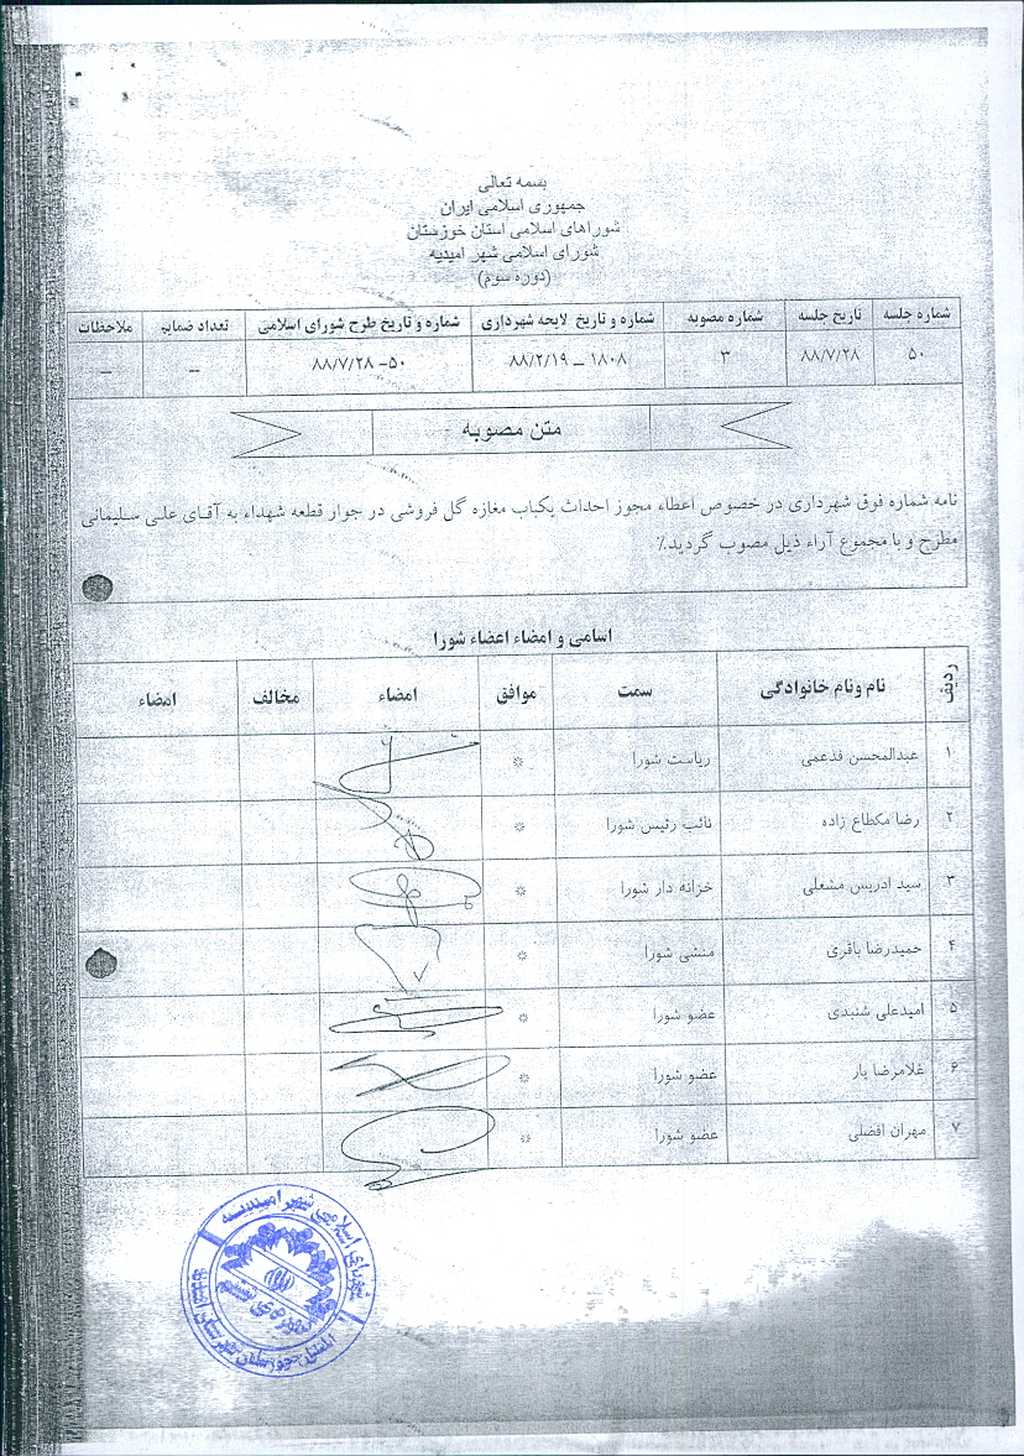 بسمه تعالی
جمهوری اسلامی ایران
شوراهای اسلامی استان خوزستان
شورای اسلامی شهر امیدیه
(دوره سوم)
شماره جلسه تاریخ جلسه شماره مصوبه شماره و تاریخ لایحه شهرداری شماره و تاریخ طرح شورای اسلامی تعداد ضمایم ملاحظات
۵۰ ۸۸/۷/۲۸ ۳ ۱۸۰۸ – ۸۸/۲/۱۹ ۵۰– ۸۸/۷/۲۸ – –
متن مصوبه
نامه شماره فوق شهرداری در خصوص اعطاء مجوز احداث یکباب مغازه گل فروشی در جوار قطعه شهداء به آقای علی سلیمانی
مطرح و با مجموع آراء ذیل مصوب گردید٪
اسامی و امضاء اعضاء شورا
ردیف نام ونام خانوادگی سمت موافق امضاء مخالف امضاء
۱ عبدالمحسن فدعمی ریاست شورا *
۲ رضا مکطاع زاده نائب رئیس شورا *
۳ سید ادریس مشعلی خزانه دار شورا *
۴ حمیدرضا باقری منشی شورا *
۵ امیدعلی شنبدی عضو شورا *
۶ غلامرضا یار عضو شورا *
۷ مهران افضلی عضو شورا *
شورای اسلامی شهر امیدیه